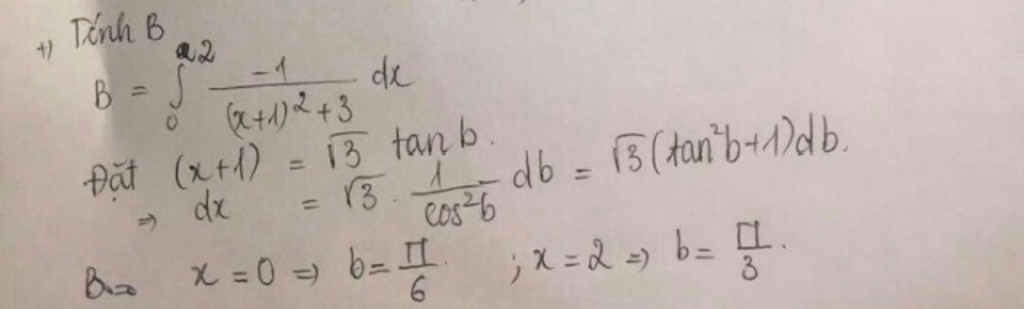 +) Tính B
B = ∫₀² -1/((x+1)² + 3) dx
Đặt (x+1) = √3 tan b.
⇒ dx = √3 . 1/cos²b db = √3 (tan²b+1)db.
B= x = 0 ⇒ b = π/6 ; x = 2 ⇒ b = π/3.